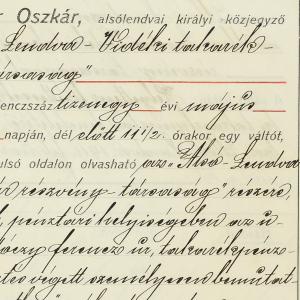 r Oszkár, alsólendvai királyi közjegyző
Lendva-Vidéki takarék-
ársaság"
enczszáz tizenegy évi május
napján, dél előtt 11 1/2. órakor egy váltót,
ulsó oldalon olvasható az „Alsó-Lendva
részvény-társaság" részére,
pénztári helyiségében az u-
óczy ferencz úr, takarékpénz-
végett személyesen bemutat-